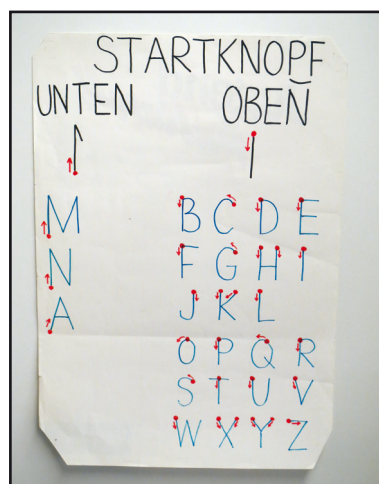 STARTKNOPF
UNTEN OBEN
M B C D E
N F G H I
A J K L
O P Q R
S T U V
W X Y Z